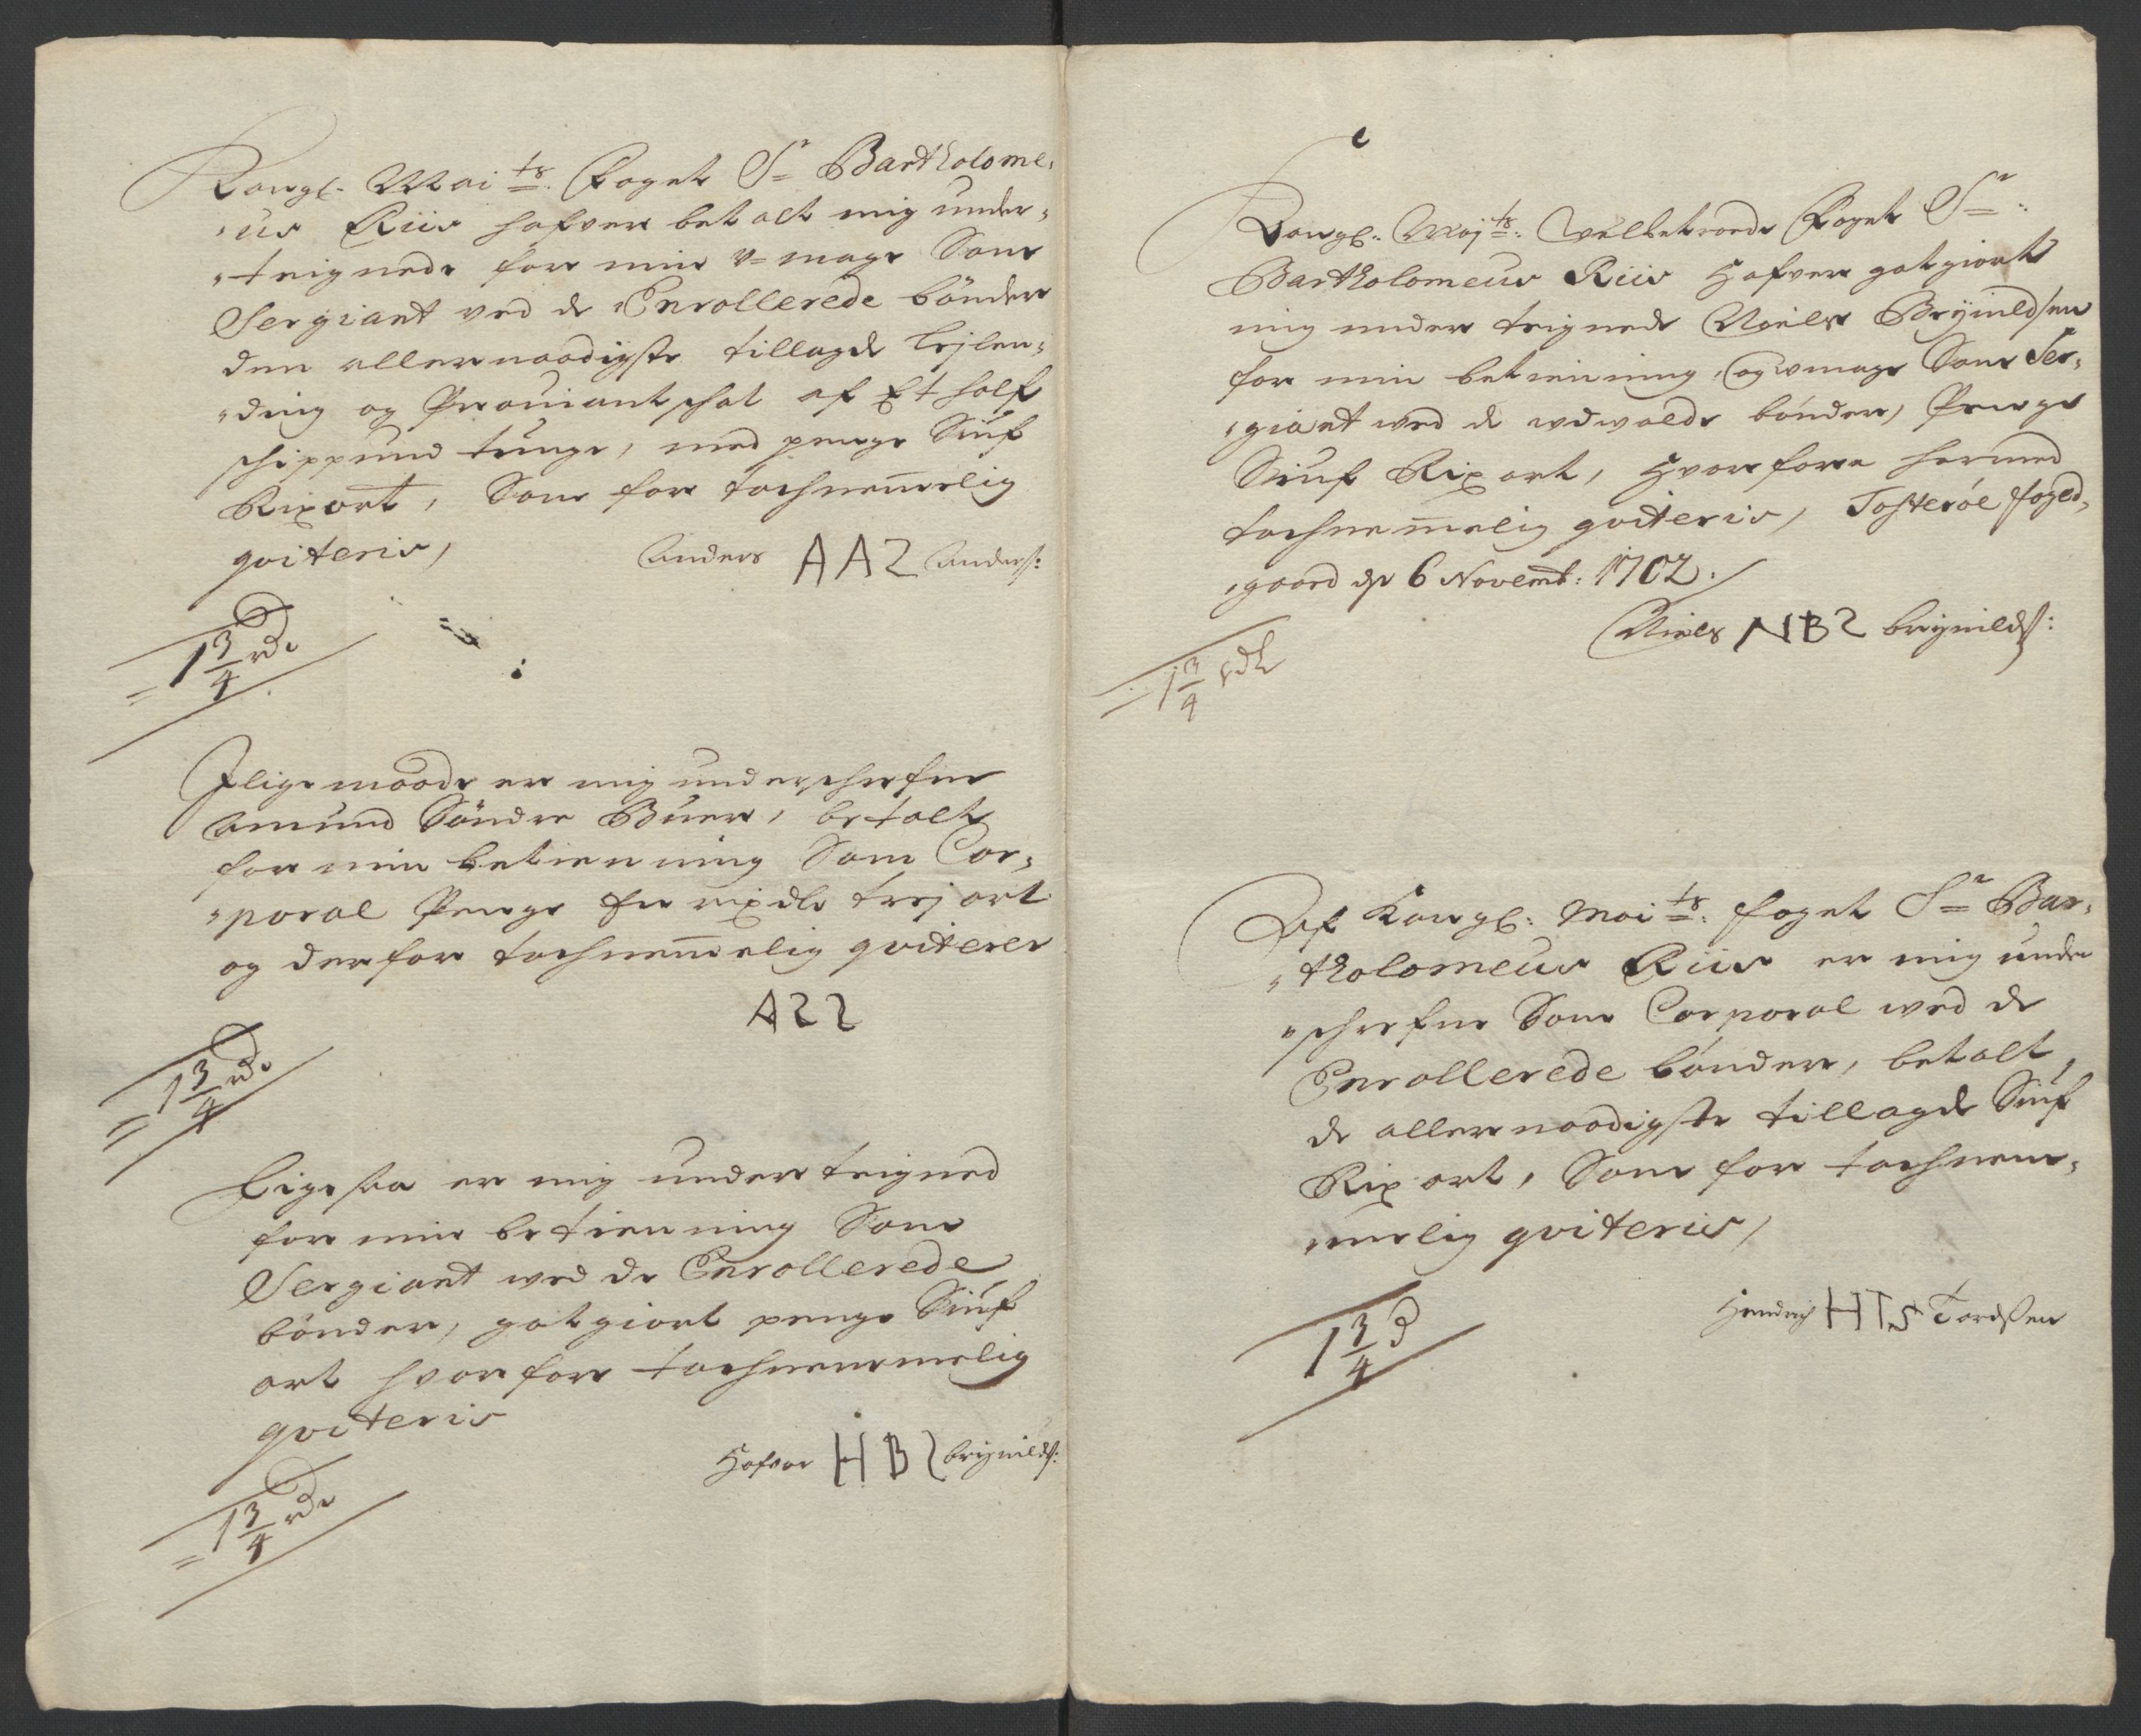 Kongl. Mai ts. Foget Sr Bartholome,
„us Riis hafver betalt mig under„
„teignede for min u=mage Som
Sergiant ved de Enrollerede bönder
den allernaadigste tillagde lejlen„
„ding og Proviantschat af Et half
schippund tunge, med penge Siuf
Rixort, Som for tachnemelig
qviteris,
Anders AAS Anders:
1 3/4 rdr
Iligemaade er mig underschrefne
Amund Söndre Buer, betalt
for min betienning Som Cor„
„poral Penge En rixdlr trej ort
og derfor tachnemelig qviterer
ASS
1 3/4 rdr
Ligesaa er mig underteigned
for min betienning Som
Sergiant ved de Enrollerede
bönder, gotgiort penge Siuf
ort hvorfore tachnemmelig
qviteris
Hafvor HBS brynilds:
1 3/4 rdr
Kongl: Maj ts: Velbetroede Foget Sr:
Bartholomeus Riis Hafver gotgiort
mig underteignede Niels Brynildsen
for min betienning, og umage Som Ser„
„giant ved de udvalde bönder, Penge
Siuf Rixort, Hvorfore hermed
tachnemelig qviteris, Tosteröe foged„
„gaard dn 6 Novemb: 1702.
Niels NBS brynilds:
1 3/4 rdlr
Af Kongl: Mai ts: foget Sr Bar„
„tholomeus Riis er mig under
„schrefne Som Corporal ved de
Enrollerede bönder, betalt,
de allernaadigste tillagde Siuf
Rixort, Som for tachnem„
„melig qviteris,
Hendrich HTS Tordsen
1 3/4 d